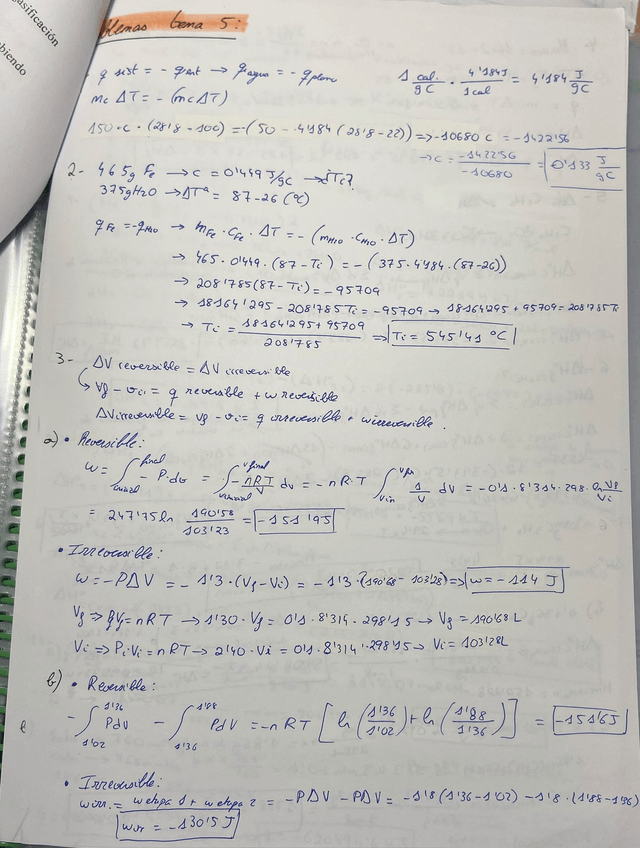 asificación
biendo
blemas tema 5:
q sist = - q ent → q agua = - q plom
1 cal/g°C · 4'184J/1cal = 4'184 J/g°C
mc ΔT = - (mc ΔT)
150 · c · (28'8 - 100) = -(50 - 4'184 (28'8 - 22)) ⇒ -10680 c = -1422'56
→ c = -1422'56/-10680 = 0'133 J/g°C
2- 465g Fe → c = 0'449 J/g°C → ¿Ti?
375g H2O → ΔTª = 87-26 (°C)
qFe = -qH2O → mFe · cFe · ΔT = - (mH2O · cH2O · ΔT)
→ 465 · 0'449 · (87 - Ti) = - (375 · 4'184 · (87-26))
→ 208'785 (87 - Ti) = - 95709
→ 18164'295 - 208'785 Ti = -95709 → 18164'295 + 95709 = 208'785 Ti
→ Ti = 18164'295 + 95709/208'785 ⇒ Ti = 545'41 °C
3- ΔU reversible = ΔU irreversible
↳ Uf - Ui = q reversible + w reversible
ΔU irreversible = Uf - Ui = q irreversible + w irreversible.
a) • Reversible:
w = ∫ inicial final - P·dv = ∫ v inicial v final -nRT/V dv = - nR·T ∫ Vin Vfin 1/V dV = -0'1 · 8'314 · 298 · ln Vf/Vi
= 247'75 ln 190'58/103'23 = -151'95
• Irreversible:
w = -PΔV = - 1'3 · (Vf - Vi) = -1'3 · (190'68 - 103'28) ⇒ w = -114 J
Vf ⇒ PfVf = nRT → 1'30 · Vf = 0'1 · 8'314 · 298'15 → Vf = 190'68 L
Vi ⇒ Pi·Vi = nRT → 2'40 · Vi = 0'1 · 8'314 · 298'15 → Vi = 103'28L
b) • Reversible:
- ∫ 1'02 1'36 PdV - ∫ 1'36 1'88 PdV = -nRT [ln (1'36/1'02) + ln (1'88/1'36)] = -151'6J
• Irreversible:
w irr. = w etapa 1 + w etapa 2 = -PΔV - PΔV = -1'8 (1'36 - 1'02) - 1'8 · (1'88 - 1'36)
wirr = -130'5 J